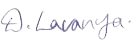 D. Lavanya.